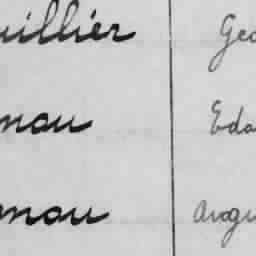 uillier Geo
nau Eda
nau Augu